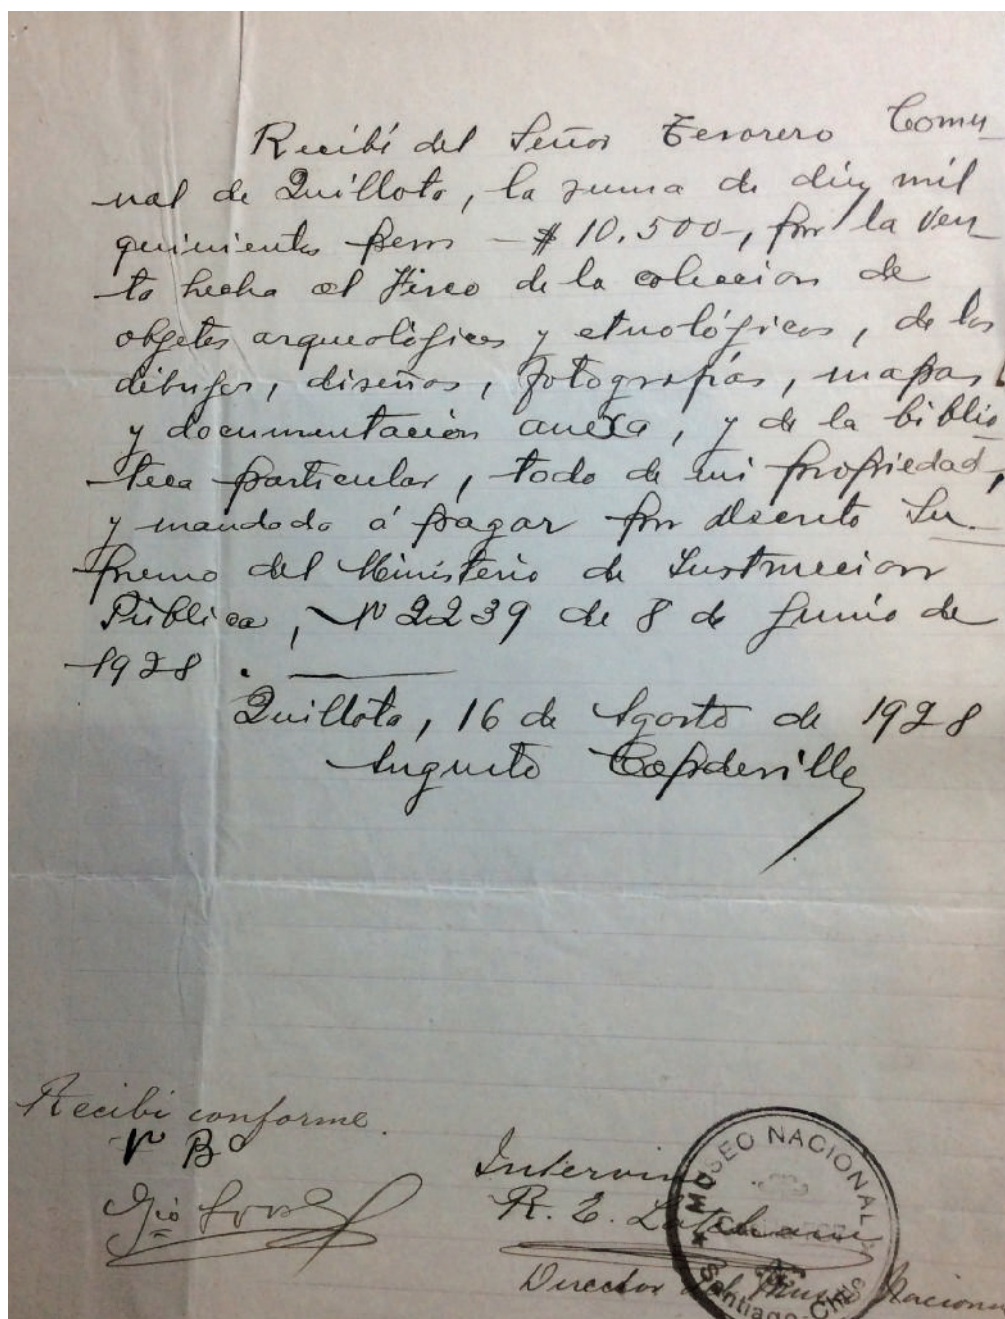 Recibí del Señor Tesorero Comu
nal de Quillota, la suma de diez mil
quinientos pesos - $ 10.500-, por la ven
ta hecha al Fisco de la coleccion de
objetos arqueológicos y etnológicos, de los
dibujos, diseños, fotografías, mapas
y documentación anexa, y de la biblio
teca particular, todo de mi propiedad,
y mandado á pagar por decreto Su
premo del Ministerio de Instruccion
Pública, Nº 2239 de 8 de Junio de
1928.
Quillota, 16 de Agosto de 1928
Augusto Capdeville
Recibi conforme.
Vº Bº
Intervino
R. E. Latcham
Director del Museo Nacional
MUSEO NACIONAL
Santiago-Chile